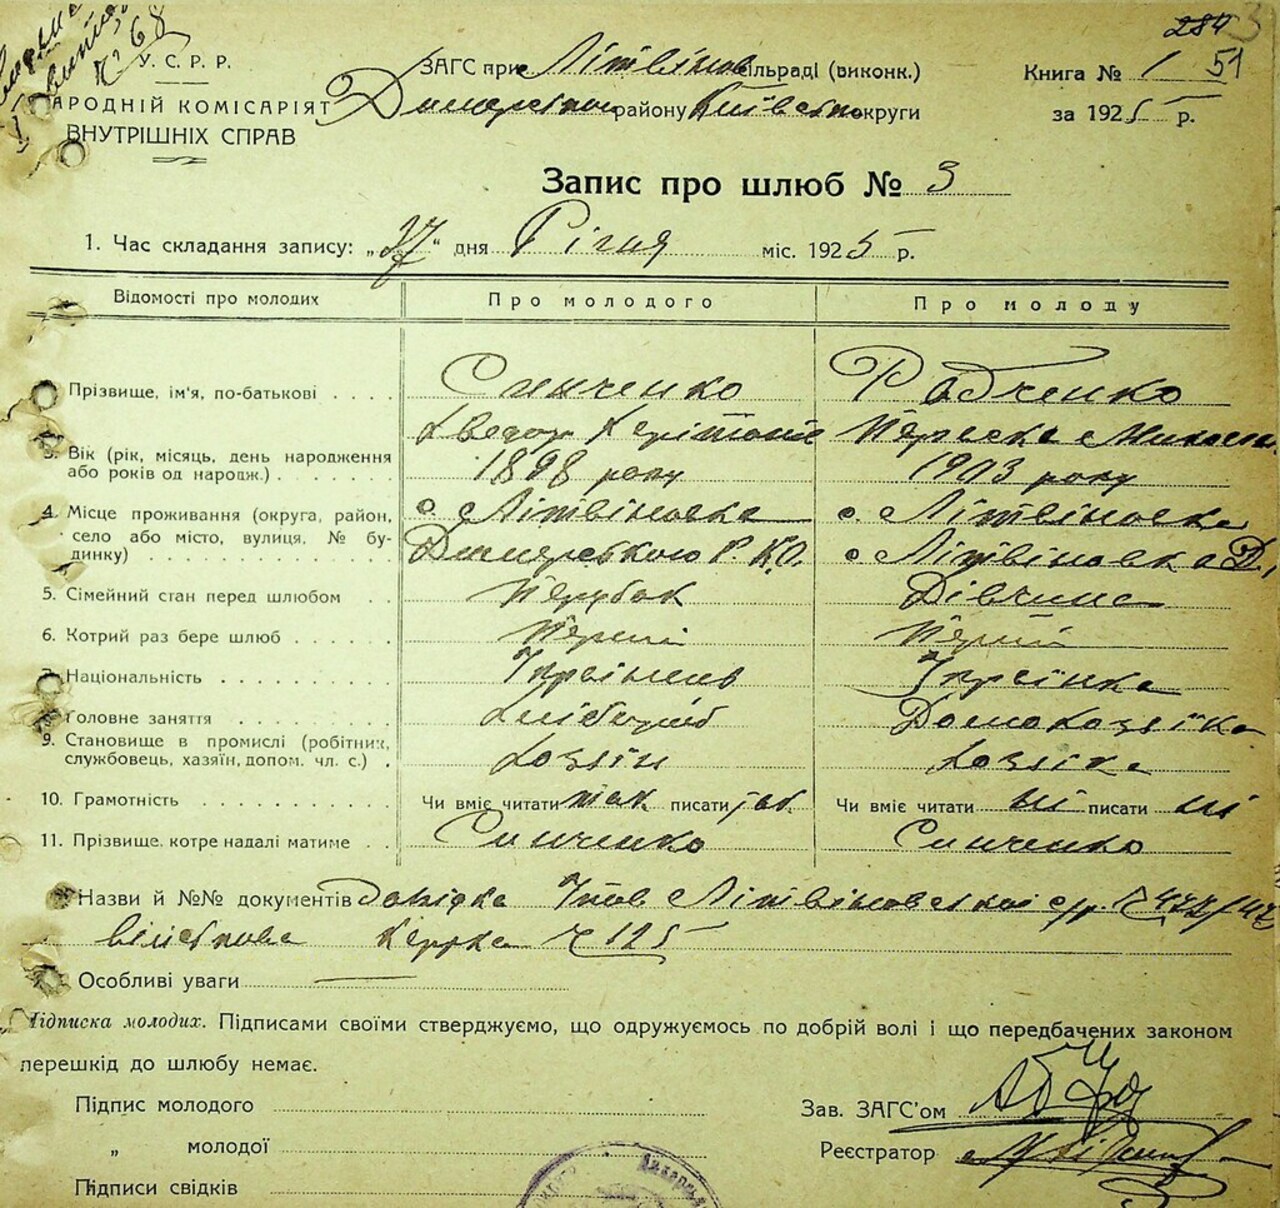 284 3
№ 68
У. С. Р. Р.
НАРОДНІЙ КОМІСАРІЯТ
ВНУТРІШНІХ СПРАВ
ЗАГС при Літвінов сільраді (виконк.)
Димерского району Київскої округи
Книга № 1 51
за 1925 р.
Запис про шлюб № 3
1. Час складання запису: „27“ дня Січня міс. 1925 р.
Відомості про молодих Про молодого Про молоду
Прізвище, ім'я, по-батькові . . . . Синченко Радченко
Хведор Харітонів Параска Микола
3. Вік (рік, місяць, день народження або років од народж.) . . . . . . 1898 року 1903 року
4. Місце проживання (округа, район, село або місто, вулиця, № будинку) . . . . с. Літвіновка с. Літвіновка
Димерського Р. К.О. с Літвіновка Д,
5. Сімейний стан перед шлюбом . . Парубок Дівчина
6. Котрий раз бере шлюб . . . . . . Перший Перший
7. Національність . . . . . . . . . . Українець Українка
8. Головне заняття . . . . . . . . . Хлібороб Домохозяйка
9. Становище в промислі (робітник, службовець, хазяїн, допом. чл. с.) . Хозяїн Хозяйка
10. Грамотність . . . . . . . . . . . Чи вміє читати так писати так Чи вміє читати ні писати ні
11. Прізвище, котре надалі матиме . . Синченко Синченко
Назви й №№ документів Довідка Літвіновської с/р. № 477/47
картка № 125
Особливі уваги —
Підписка молодих. Підписами своїми стверджуємо, що одружуємось по добрій волі і що передбачених законом
перешкід до шлюбу немає.
Підпис молодого
Зав. ЗАГС'ом
„ молодої
Реєстратор
Підписи свідків